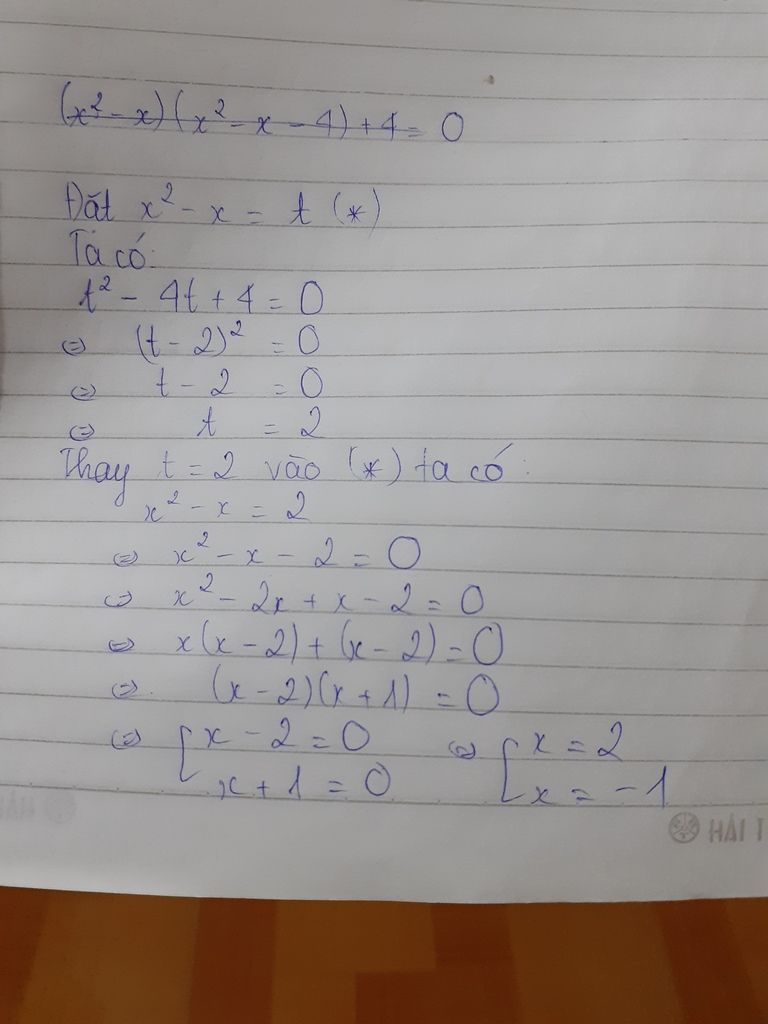 (x² - x)(x² - x - 4) + 4 = 0
Đặt x² - x = t (*)
Ta có:
t² - 4t + 4 = 0
⇔ (t - 2)² = 0
⇔ t - 2 = 0
⇔ t = 2
Thay t = 2 vào (*) ta có:
x² - x = 2
⇔ x² - x - 2 = 0
⇔ x² - 2x + x - 2 = 0
⇔ x(x - 2) + (x - 2) = 0
⇔ (x - 2)(x + 1) = 0
⇔ [ x - 2 = 0 ⇔ [ x = 2
x + 1 = 0 x = -1
HẢI T